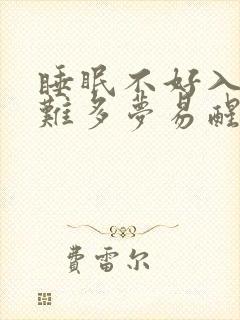 睡眠不好入
難多夢易醒
費雷尔